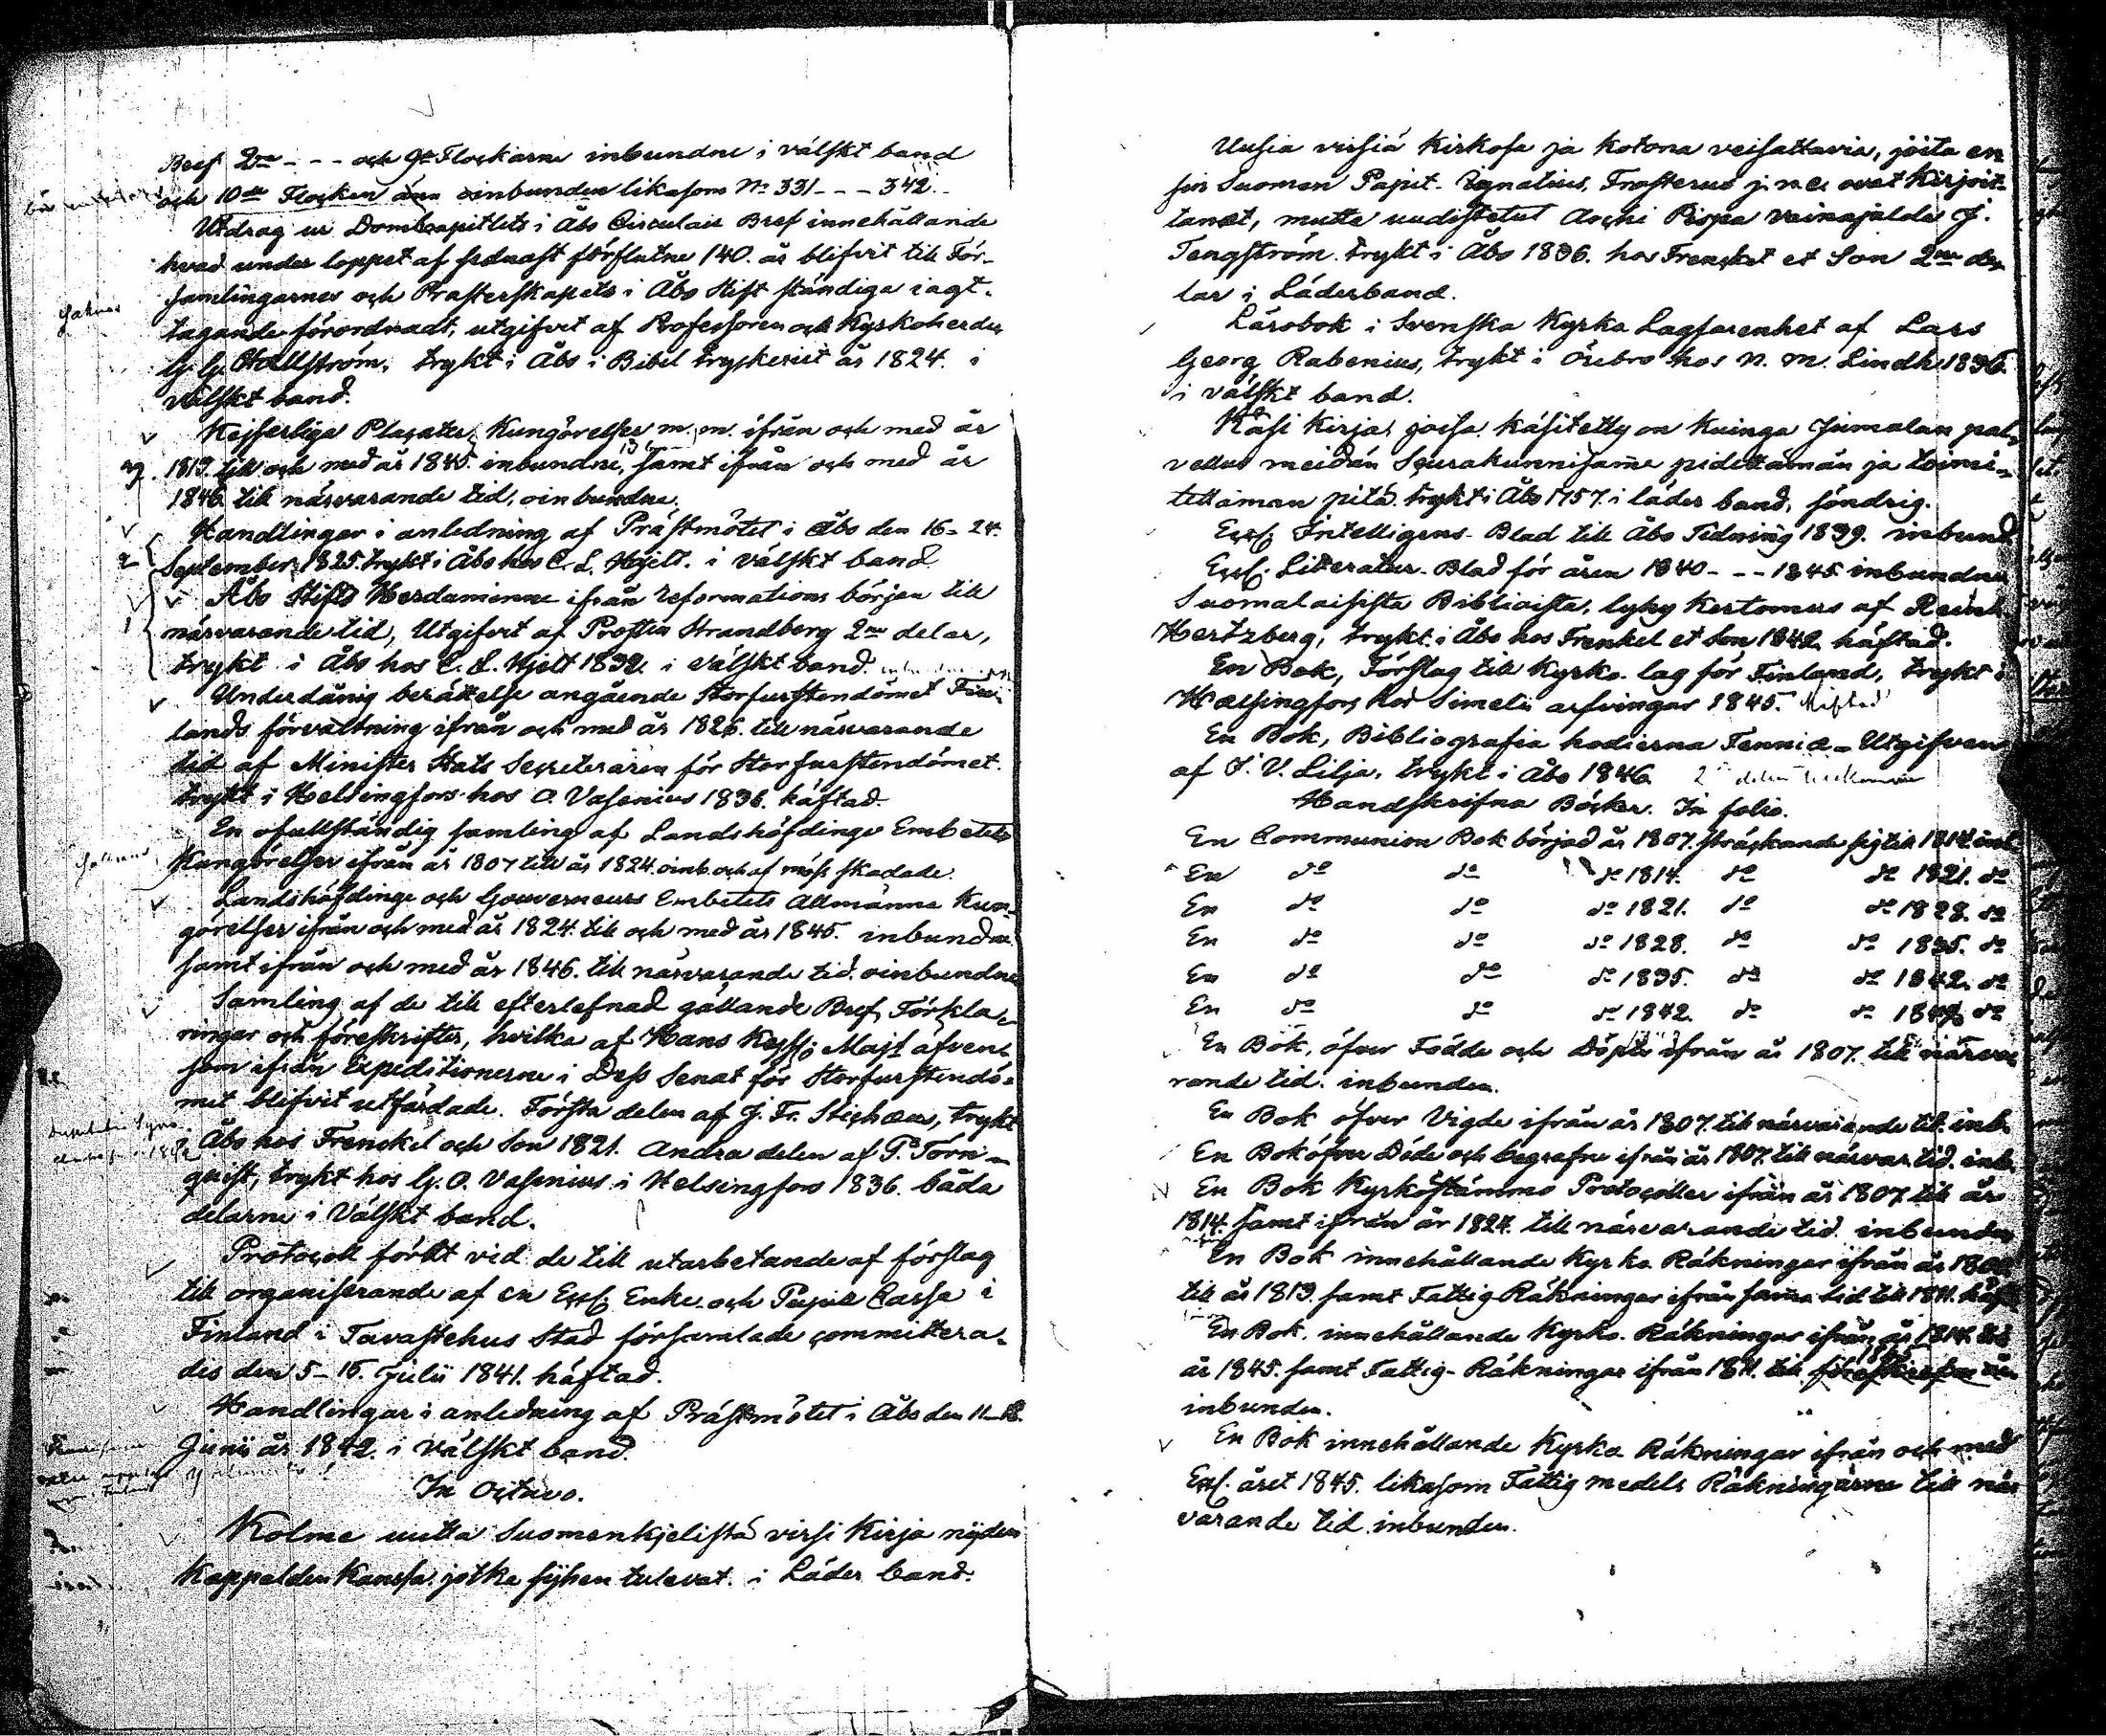 Bref 2ra - - - och 9de Flockarne inbundne i välskt band
och 10de Flocken ännu oinbunden likasom No 331 - - - 342.
Utdrag ur Domkapitlets i Åbo Circulair Bref innehållande
hvad under loppet af sednast förflutne 140. år blifvit till För-
samlingarnes och Prästerskapets i Åbo Stift ständiga iagt-
Saknas
tagande förordnadt, utgifvit af Professoren och Kyrkoherden
G. G. Hällström, trykt i Åbo i Bibel tryckeriet år 1824. i
välskt band.
Kejserliga Placater, Kungörelser m. m. ifrån och med år
1819. till och med år 1845. inbundne, samt ifrån och med år
1846. till närvarande tid, oinbundne.
Handlingar i anledning af Prästmötet i Åbo den 16-24.
September 1825. trykt i Åbo hos C. L. Hjelt. i välskt band.
Åbo Stifts Herdaminne ifrån reformations början till
närvarande tid, Utgifvit af Prosten Strandberg 2ne delar,
trykt i Åbo hos C. L. Hjelt 1832. i välskt band.
Underdånig berättelse angående Storfurstendömet Fin-
lands förvaltning ifrån och med år 1826. till närvarande
tid af Minister Stats Secreteraren för Storfurstendömet.
trykt i Helsingfors hos O. Vasenius 1836. häftad.
En ofullständig samling af Landshöfdinge Embetets
Kungörelser ifrån år 1807 till år 1824. oinb. och af möss skadade.
Landshöfdinge och Gouverneurs Embetets Allmänna Kun-
görelser ifrån och med år 1824. till och med år 1845. inbundne
samt ifrån och med år 1846. till närvarande tid. oinbundne
Samling af de till efterlefnad gällande Bref, Förkla-
ringar och föreskrifter, hvilka af Hans Kejs: Majt äfven-
som ifrån Expeditionerne i Dess Senat för Storfurstendö-
met blifvit utfärdade. Första delen af J. Fr. Stichæus, trykt
Åbo hos Frenckel och Son 1821. Andra delen af P. Törn-
qvist, trykt hos G. O. Vasenius i Helsingfors 1836. båda
delarne i Välskt band.
Protocoll fördt vid de till utarbetande af förslag
till organiserande af en Eccl. Enke- och Pupill Cassa i
Finland i Tavastehus Stad församlade committera-
des den 5-15. Julii 1841. häftad.
Handlingar i anledning af Prästmötet i Åbo den 11-
Junii år 1842. i välskt band.
In Octavo.
Kolme uutta Suomenkjelistä virsi Kirja nijden
Kappalden Kanssa jotka syhen tulevat. i Läder band.
Uusia virsiä Kirkosa ja Kotona veisattavia, joita en
sin Suomen Papit. Ignatius, Frosterus j. n. e. ovat Kirjoit-
tanet, mutta uudistetut Archi Pispa vainajalda J.
Tengström. trykt i Åbo 1836. hos Frenckel et Son 2ne de-
lar i Läderband.
Lärobok i Svenska Kyrko Lagfarenhet af Lars
Georg Rabenius, trykt i Örebro hos N. M. Lindh 1836.
i välskt band.
Käsi Kirja, joisa käsitetty on Kuinga Jumalan pal-
vellus meidän Seurakunnisamme pidettämän ja toimi-
tettaman pitä. trykt i Åbo 1757. i läder band, söndrig.
Eccl. Intelligens-Blad till Åbo Tidning 1839. inbund.
Eccl. Literatur-Blad för åren 1840 - - - 1845 inbundne
Suomalaisista Bibliaista, lyhy Kertomus af Reinh
Hertzberg, trykt i Åbo hos Frenkel et Son 1842. häftad.
En Bok, Förslag till Kyrko-lag för Finland, trykt i
Hælsingfors hos Simelii arfvingar 1845. Häftad
En Bok, Bibliografia hodierna Fennica. Utgifven
af J. V. Lilja, trykt i Åbo 1846.
Handskrifna Böcker. In folio.
En Communion Bok började år 1807. sträckande sig till 1814. inb
En do do do 1814. do do 1821. do
En do do do 1821. do do 1828. do
En do do do 1828. do do 1835. do
En do do do 1835. do do 1842. do
En do do do 1842. do do 1849. do
En Bok, öfver Födde och Döpte ifrån år 1807. till närva-
rande tid. inbunden.
En Bok öfver Vigde ifrån år 1807. till närvarande tid. inb.
En Bok öfver Döde och begrafne ifrån år 1807. till närvar. tid. inb.
En Bok Kyrkostämmo Protocoller ifrån år 1807. till år
1814. samt ifrån år 1824. till närvarande tid. inbunden
En Bok innehållande Kyrko Räkningar ifrån år
till år 1819. samt Fattig-Räkningar ifrån samma tid till 1811. häft
En Bok innehållande Kyrko-Räkningar ifrån år 1814. till
år 1845. samt Fattig-Räkningar ifrån 1811. till
inbunden.
En Bok innehållande Kyrko Räkningar ifrån och med
Eccl. året 1845. likasom Fattig medels Räkningarne till när
varande tid. inbunden.